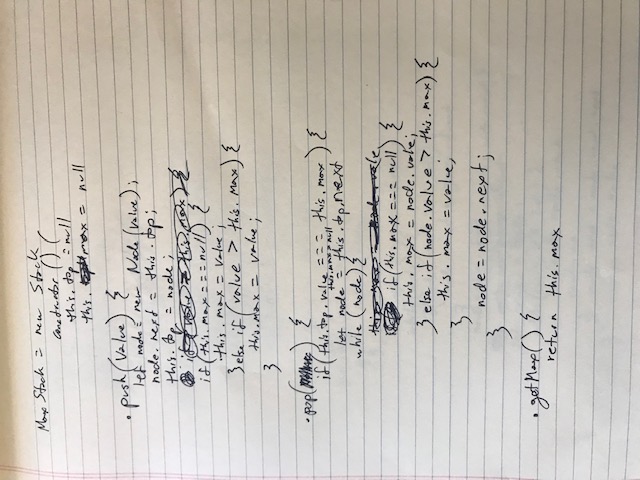 Max Stack = new Stack
constructor () {
this.top = null
this. max = null
.push(value) {
let node = new Node(value);
node.next = this.top;
this.top = node;
if (value > this.max) {
if (this.max === null) {
this.max = value;
} else if (value > this.max) {
this.max = value;
}
.pop( ) {
if (this.top.value === this.max) {
this.max = null
let node = this.top.next
while (node) {
this.max = node.value
if (this.max === null) {
this.max = node.value;
} else if (node.value > this.max) {
this.max = value;
}
node = node.next;
}
.getMax() {
return this.max